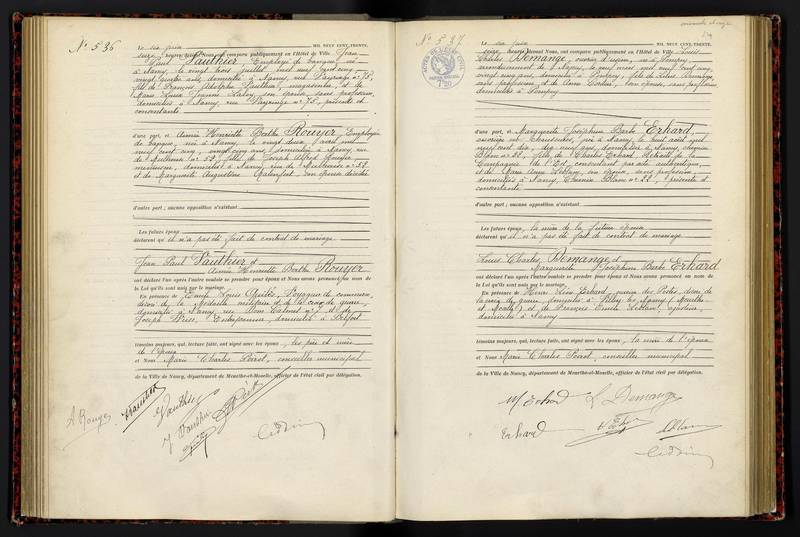 N° 536
Le six juin MIL NEUF CENT TRENTE,
seize heures devant Nous, ont comparu publiquement en l'Hôtel de Ville Jean
Paul Vauthier, Employé de banque, né
à Nancy, le vingt trois juillet mil neuf cent cinq
vingt quatre ans, domicilié à Nancy, rue n° 75,
fils de François Adolphe Vauthier, magasinier, et de
Marie Louise Jeanne son épouse, sans profession,
domiciliés à Nancy, rue n° 75, présents et
consentants
d'une part, et Aimée Henriette Berthe Rouyer, Employée
de banque, née à Nancy, le vingt deux avril mil
neuf cent cinq, vingt cinq ans, domiciliée à Nancy, rue
de Mulhouse n° 52, fille de Joseph Alfred Rouyer
menuisier, domicilié à Nancy, rue de Mulhouse n° 52
et de Marguerite Augustine son épouse décédée
d'autre part; aucune opposition n'existant
Les futurs époux
déclarent qu'il n'a pas été fait de contrat de mariage
Jean Paul Vauthier et
Aimée Henriette Berthe Rouyer
ont déclaré l'un après l'autre vouloir se prendre pour époux et Nous avons prononcé au nom de
la Loi qu'ils sont unis par le mariage.
En présence de Emile Louis Voyageur de commerce
décoré de la Médaille militaire et de la croix de guerre,
domicilié à Nancy rue Dom Calmet n° 7 et de
Joseph Entrepreneur, domicilié à Belfort
témoins majeurs, qui, lecture faite, ont signé avec les époux, les père et mère
de l'époux
et Nous Marie Charles Poirot, conseiller municipal
de la Ville de Nancy, département de Meurthe-et-Moselle, officier de l'état civil par délégation.
A Rouyer
Vauthier
J Vauthier
N° 537
Le six juin MIL NEUF CENT TRENTE,
seize heures devant Nous, ont comparu publiquement en l'Hôtel de Ville Louis
Charles Demange, ouvrier d'usine, né à Pompey
arrondissement de Nancy, le neuf mars mil neuf cent cinq
vingt cinq ans, domicilié à Pompey, fils de Demange,
sans profession, et de Anne son épouse, sans profession,
domiciliés à Pompey
d'une part, et Marguerite Joséphine Barbe Erhard,
ouvrière en chaussures, née à Nancy, le huit août mil
neuf cent dix, dix neuf ans, domiciliée à Nancy, chemin
Blanc n° 22, fille de Charles Erhard, Retraité de la
Compagnie de l'Est, consentant par acte authentique,
et de Marie Anne Leclair, son épouse, sans profession,
domiciliés à Nancy, Chemin Blanc n° 22, présente et
consentante
d'autre part; aucune opposition n'existant
Les futurs époux, la mère de la future épouse
déclarent qu'il n'a pas été fait de contrat de mariage
Louis Charles Demange et
Marguerite Joséphine Barbe Erhard
ont déclaré l'un après l'autre vouloir se prendre pour époux et Nous avons prononcé au nom de
la Loi qu'ils sont unis par le mariage.
En présence de Henri Léon Erhard, des Postes, décoré de
la croix de guerre, domicilié à Nancy (Meurthe
et Moselle) et de François Emile Leclair, ajusteur,
domicilié à Nancy
témoins majeurs, qui, lecture faite, ont signé avec les époux, la mère de l'épouse
et Nous Marie Charles Poirot, conseiller municipal
de la Ville de Nancy, département de Meurthe-et-Moselle, officier de l'état civil par délégation.
M Erhard L Demange
Erhard